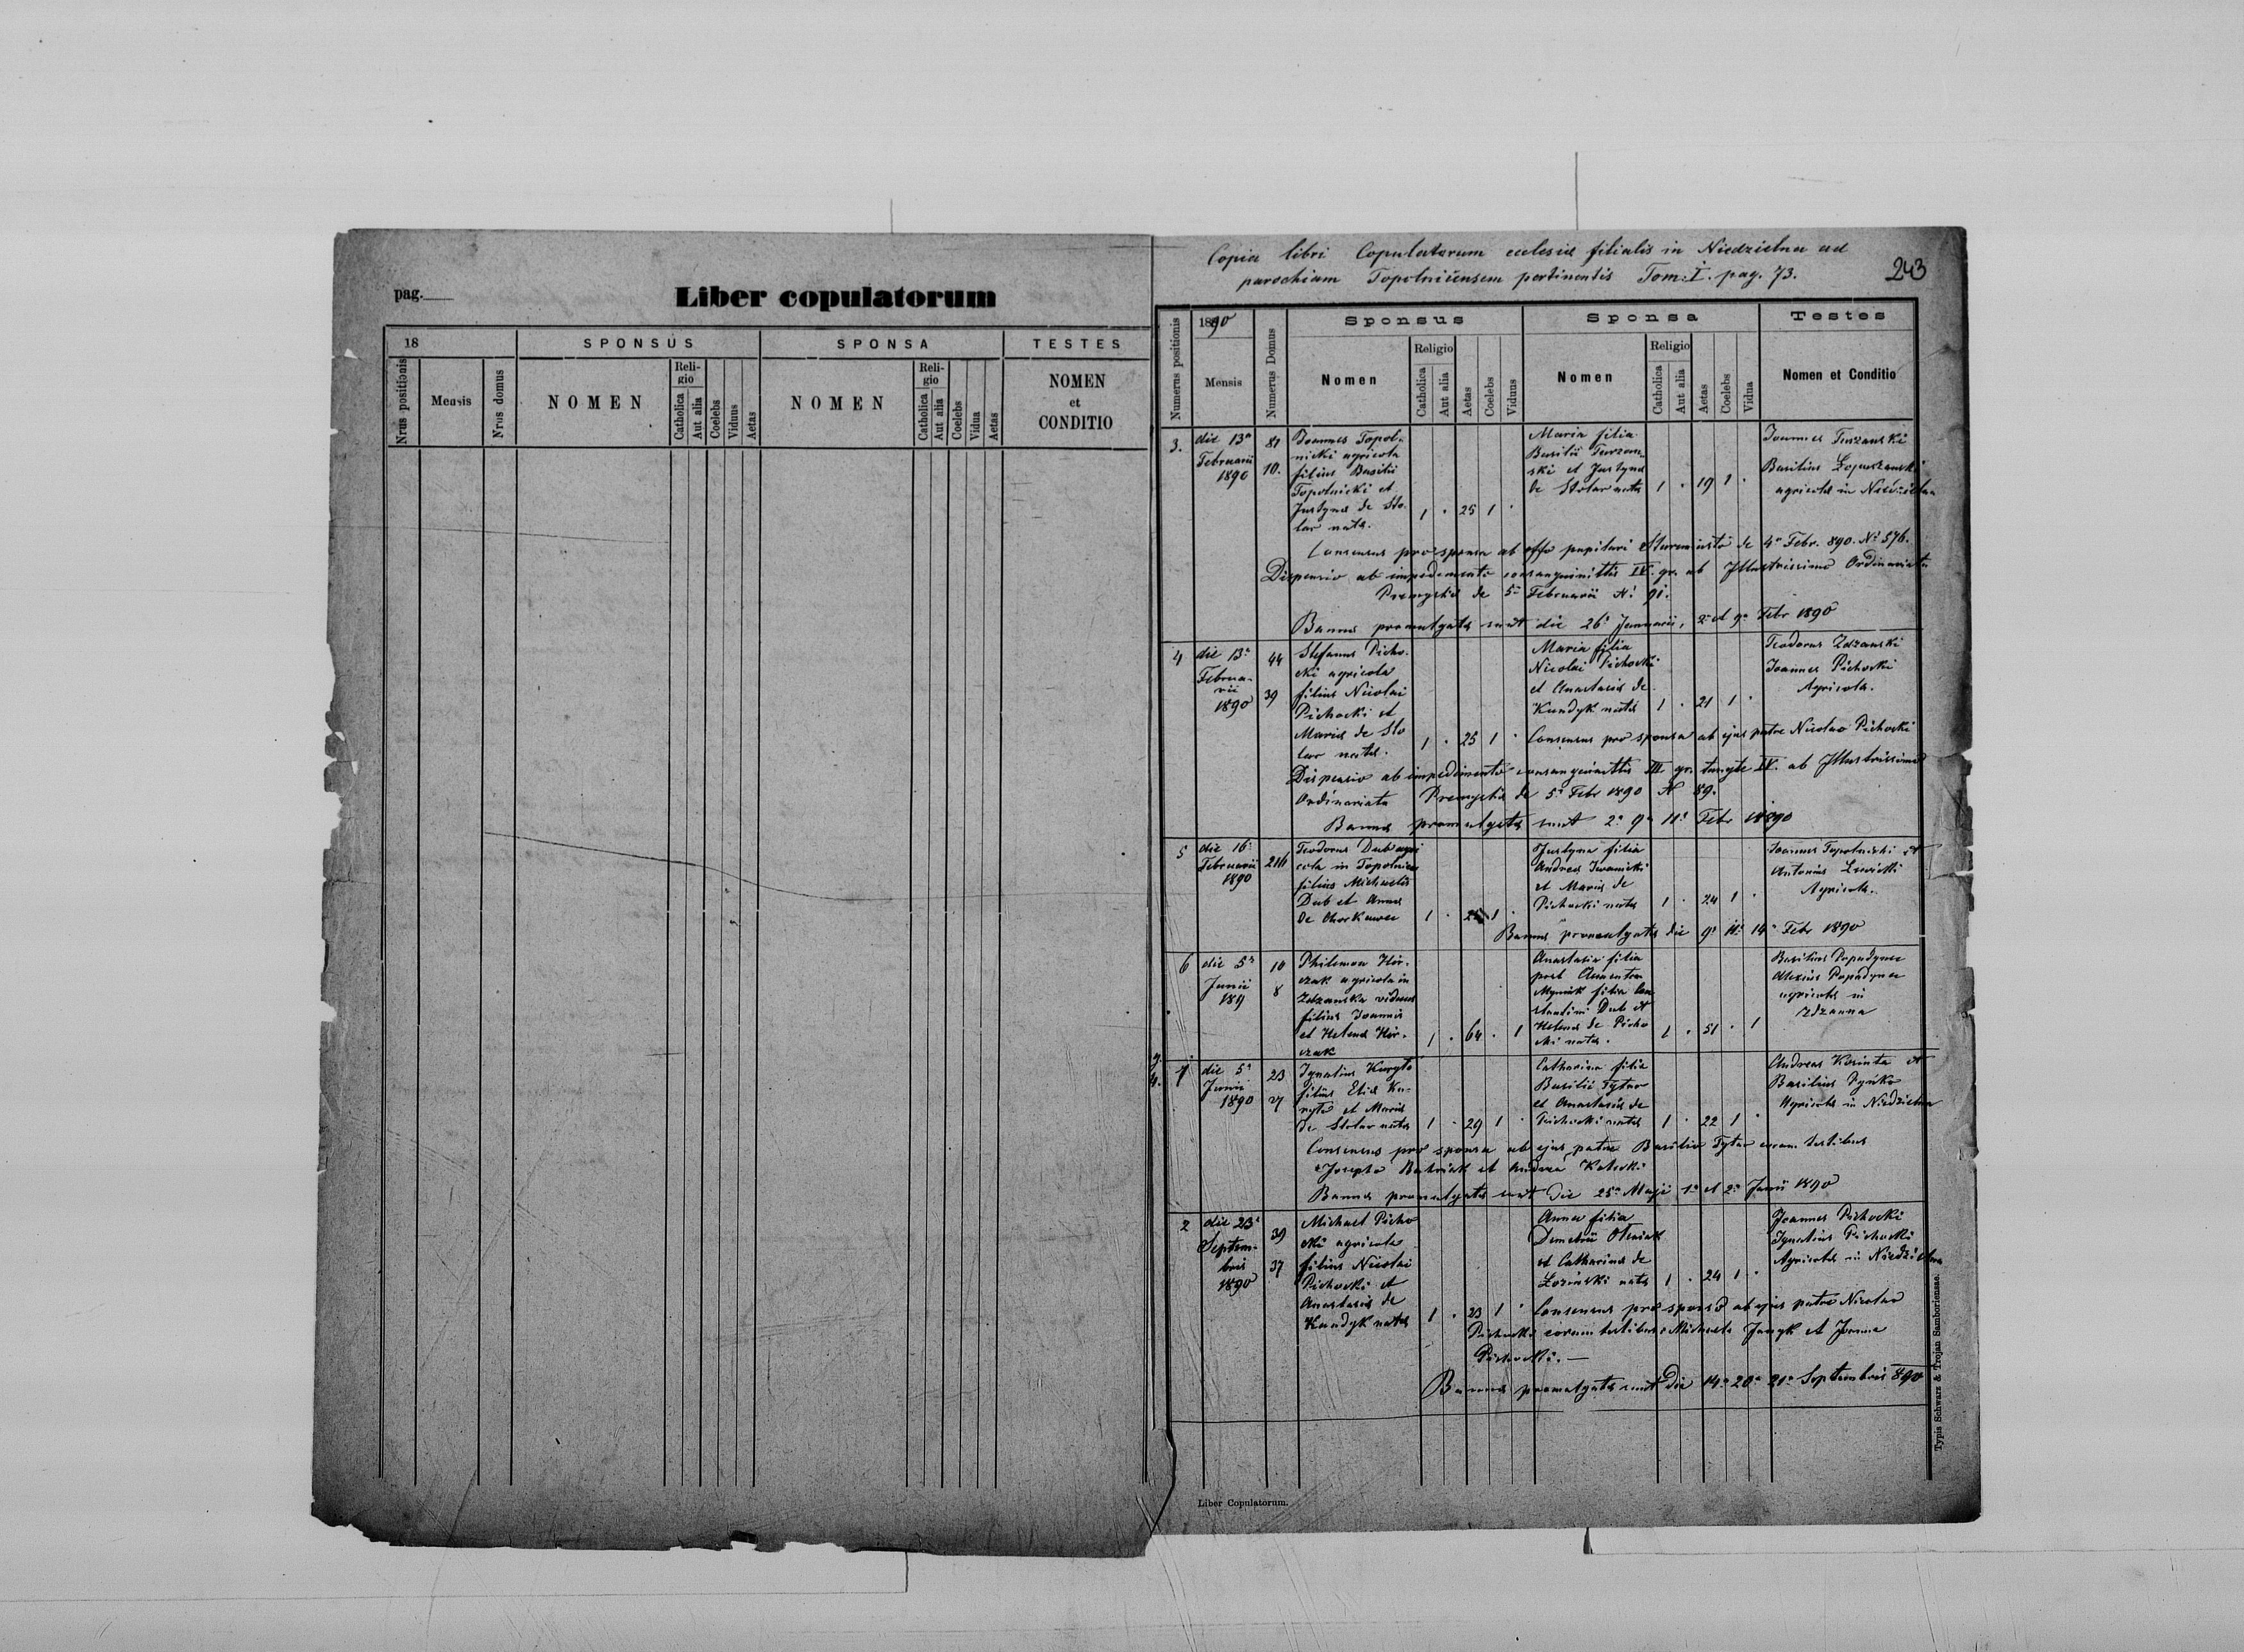 pag.
Liber copulatorum
18
SPONSUS
SPONSA
TESTES
Nrus positionis
Mensis
Nrus domus
NOMEN
Reli-
gio
Catholica
Aut alia
Coelebs
Viduus
Aetas
NOMEN
Reli-
gio
Catholica
Aut alia
Coelebs
Vidua
Aetas
NOMEN
et
CONDITIO
Copia libri Copulatorum eclesiae filialis in Niedzielna ad
parochiam Topolnicensem pertinentis Tom: I. pag. 73.
243
Numerus positionis
1890
Mensis
Numerus Domus
Sponsus
Nomen
Religio
Catholica
Aut alia
Aetas
Coelebs
Viduus
Sponsa
Nomen
Religio
Catholica
Aut alia
Aetas
Coelebs
Vidua
Testes
Nomen et Conditio
3.
die 13a
Februarii
1890
81
10.
Joannes Topol-
nicki agricola
filius Basilii
Topolnicki et
Justyna de Sto-
lar nata.
1 · 25 1 ·
Maria filia
Basilii Turzan-
ski et Justyna
de Stolar nata
1 · 19 1 ·
Joannes Turzanski
Basilius Łopuszanski
agricola in
Consensus pro sponsa ab offo pupilari de 4a Febr. 890. No 576.
Dispensio ab impedimento consanguinittis IV. gr. ab Illustrissimo Ordinariatu
Premyslia de 5a Februarii No 91.
Banna promulgata sunt die 26a Januarii, 2a et 9a Febr 1890
4
die 13a
Februa-
rii
1890
44
39
Stefanus Picho-
cki agricola
filius Nicolai
Pichocki et
Maria de Sto
lar nata.
1 · 25 1 ·
Maria filia
Nicolai Pichocki
et Anastasia de
Kundyk nata
1 · 21 1 ·
Teodorus
Joannes Pichocki
Agricola.
Consensus pro sponsa ab ejus patre Nicolao Pichocki
Dispensio ab impedimento consanguinittis III gr. tangte IV. ab Illustrissimo
Ordinariatu Premyslia de 5a Febr 1890 N 89.
Banna promulgata sunt 2a 9a 11a Febr 1890
5
die 16a
Februarii
1890
216
Teodorus Dub agri
cola in Topolnica
filius Michaelis
Dub et Anna
de
1 · 1 ·
Justyna filia
Andrea Iwanicki
et Maria de
Pichocki nata
1 · 24 1 ·
Joannes Topolnicki et
Antonius
Agricola.
Banna promulgata die 9a 11a 14a Febr 1890
6
die 5a
Junii
10
8
Philimon Hor-
czak agricola in
viduus
filius Joannis
et Helena Hor-
czak
1 · 64 · 1
Anastasia filia
post
filia Con
stantini Dub et
Helena de Picho
cki nata.
1 · 51 · 1
Basilius Popadynec
Alexius Popadynec
agricola in
7
die 5a
Junii
1890
23
27
Ignatius Kuryło
filius Elia Ku-
ryło et Maria
de Stolar nata
1 · 29 1 ·
Catharina filia
Basilii Tytar
et Anastasia de
Pichocki nata
1 · 22 1 ·
Andreas et
Basilius
Agricola in Niedzielna
Consensus pro sponsa ab ejus patre Basilio Tytar coram testibus
Josepho et Andrea
Banna promulgata sunt die 25a Maji 1a et 2a Junii 1890
2
die 23a
Septem-
bris
1890
39
37
Michael Picho
cki agricola
filius Nicolai
Pichocki et
Anastasia de
Kundyk nata
1 · 23 1 ·
Anna filia
Demetrii
et Catharina de
Łozinski nata
1 · 24 1 ·
Joannes Pichocki
Ignatius Pichocki
Agricola in Niedzielna
Consensus pro sponso ab ejus patre Nicolao
Pichocki coram testibus Michaele et Joanne
Pichocki. —
Banna promulgata sunt die 14a 20a 21a Septembris 890
Liber Copulatorum.
Typis Schwarz & Trojan Samboriensae.